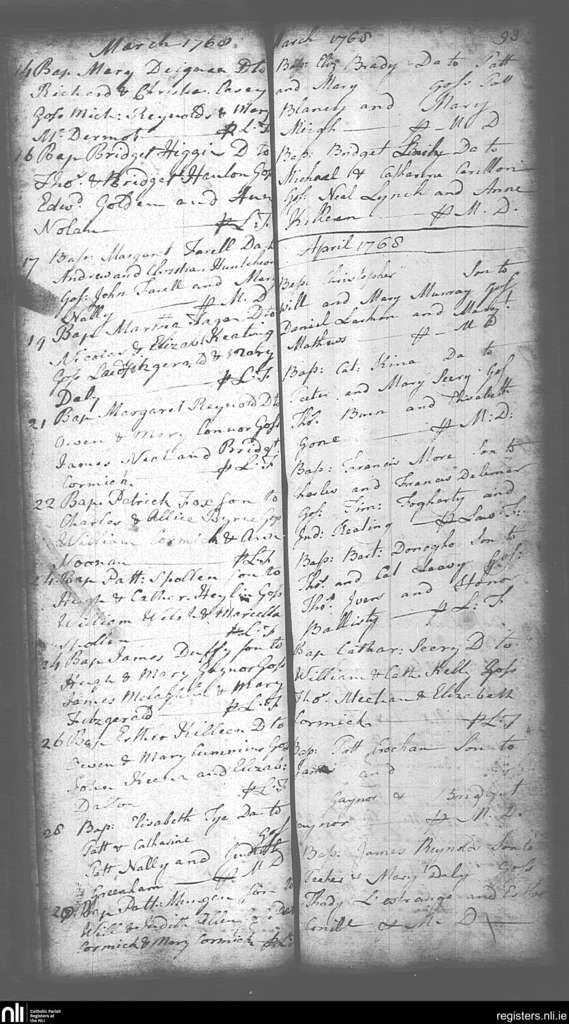 March 1768
14 Bap. Mary Deignan D to
Richard & Christn. Casey
Goss Mich: Reynolds & Mary
Mc Dermot L:F
16 Bap Bridget Higgin D to
Thos. & Bridget Hanlon Gos
Edwd. Golden and
Nolan L:F.
17 Bap: Margaret Farell Da to
Andrew and Christian
Goss: John Farell and Mary
Nally M. D
19 Bap. Martha Fagan D to
Nicolas & Elizab Keating
Goss Fitzgerald & Mary
Daly L:F
21 Bap. Margaret Reynold D to
Owen & Mary Connor Goss
James Neal and Bridgt.
Cormick. L:F
22 Bap. Patrick Fox Son to
Charles & Allice Goss
William Cormick & Ann
Noonan L:F
24 Bap Patt: Spollen Son to
Hugh & Cather: Goss
William Welsh & Marcella
Spollen L:F
24 Bap James Duffy Son to
Hugh & Mary Gaynor Goss
James & Mary
Fitzgerald L:F
26 Bap Esther Killeen D to
Owen & Mary Cummins Goss
John and Elizab:
Dalton L:F
28 Bap: Elisabeth Tye Da to
Patt & Catharine Goss
Patt Nally and Judith
M D
29 Bap Patt: Son to
Will & Judith
Cormick & Mary Cormick L:F
March 1768
93
Bap: Eliz Brady Da to Patt
and Mary Goss Patt
Blaney and Mary
Keigh M D
Bap: Bridget Da to
Michael & Catherine
Gos: Neal Lynch and Anne
Killean M. D.
April 1768
Bap: Christopher Son to
Will and Mary Murray Goss
Daniel and Margt
Mathews M D
Bap: Cat: Kina Da to
Peter and Mary Seery Goss
Thos. and Elisabeth
M: D:
Bap: Francis More Son to
Charles and Frances Delamar
Gos: Tim: Fogherty and
Jud: Keating Law F:
Bap: Bart: Donogho Son to
Thos and Cat Leavy Gos:
Thos. Ivers and Honor
L: F
Bap Cathar: Seery D to
William & Cath: Kelly Goss
Thos. Meehan & Elizabeth
Cormick L:F
Bap: Patt Son to
and
Gaynor & Bridget
Gaynor M. D.
Bap: James Reynold Son to
Peeter & Mary Daly Goss
Thady Lestrange and
M. D
nli
Catholic Parish
Registers at
the NLI
registers.nli.ie